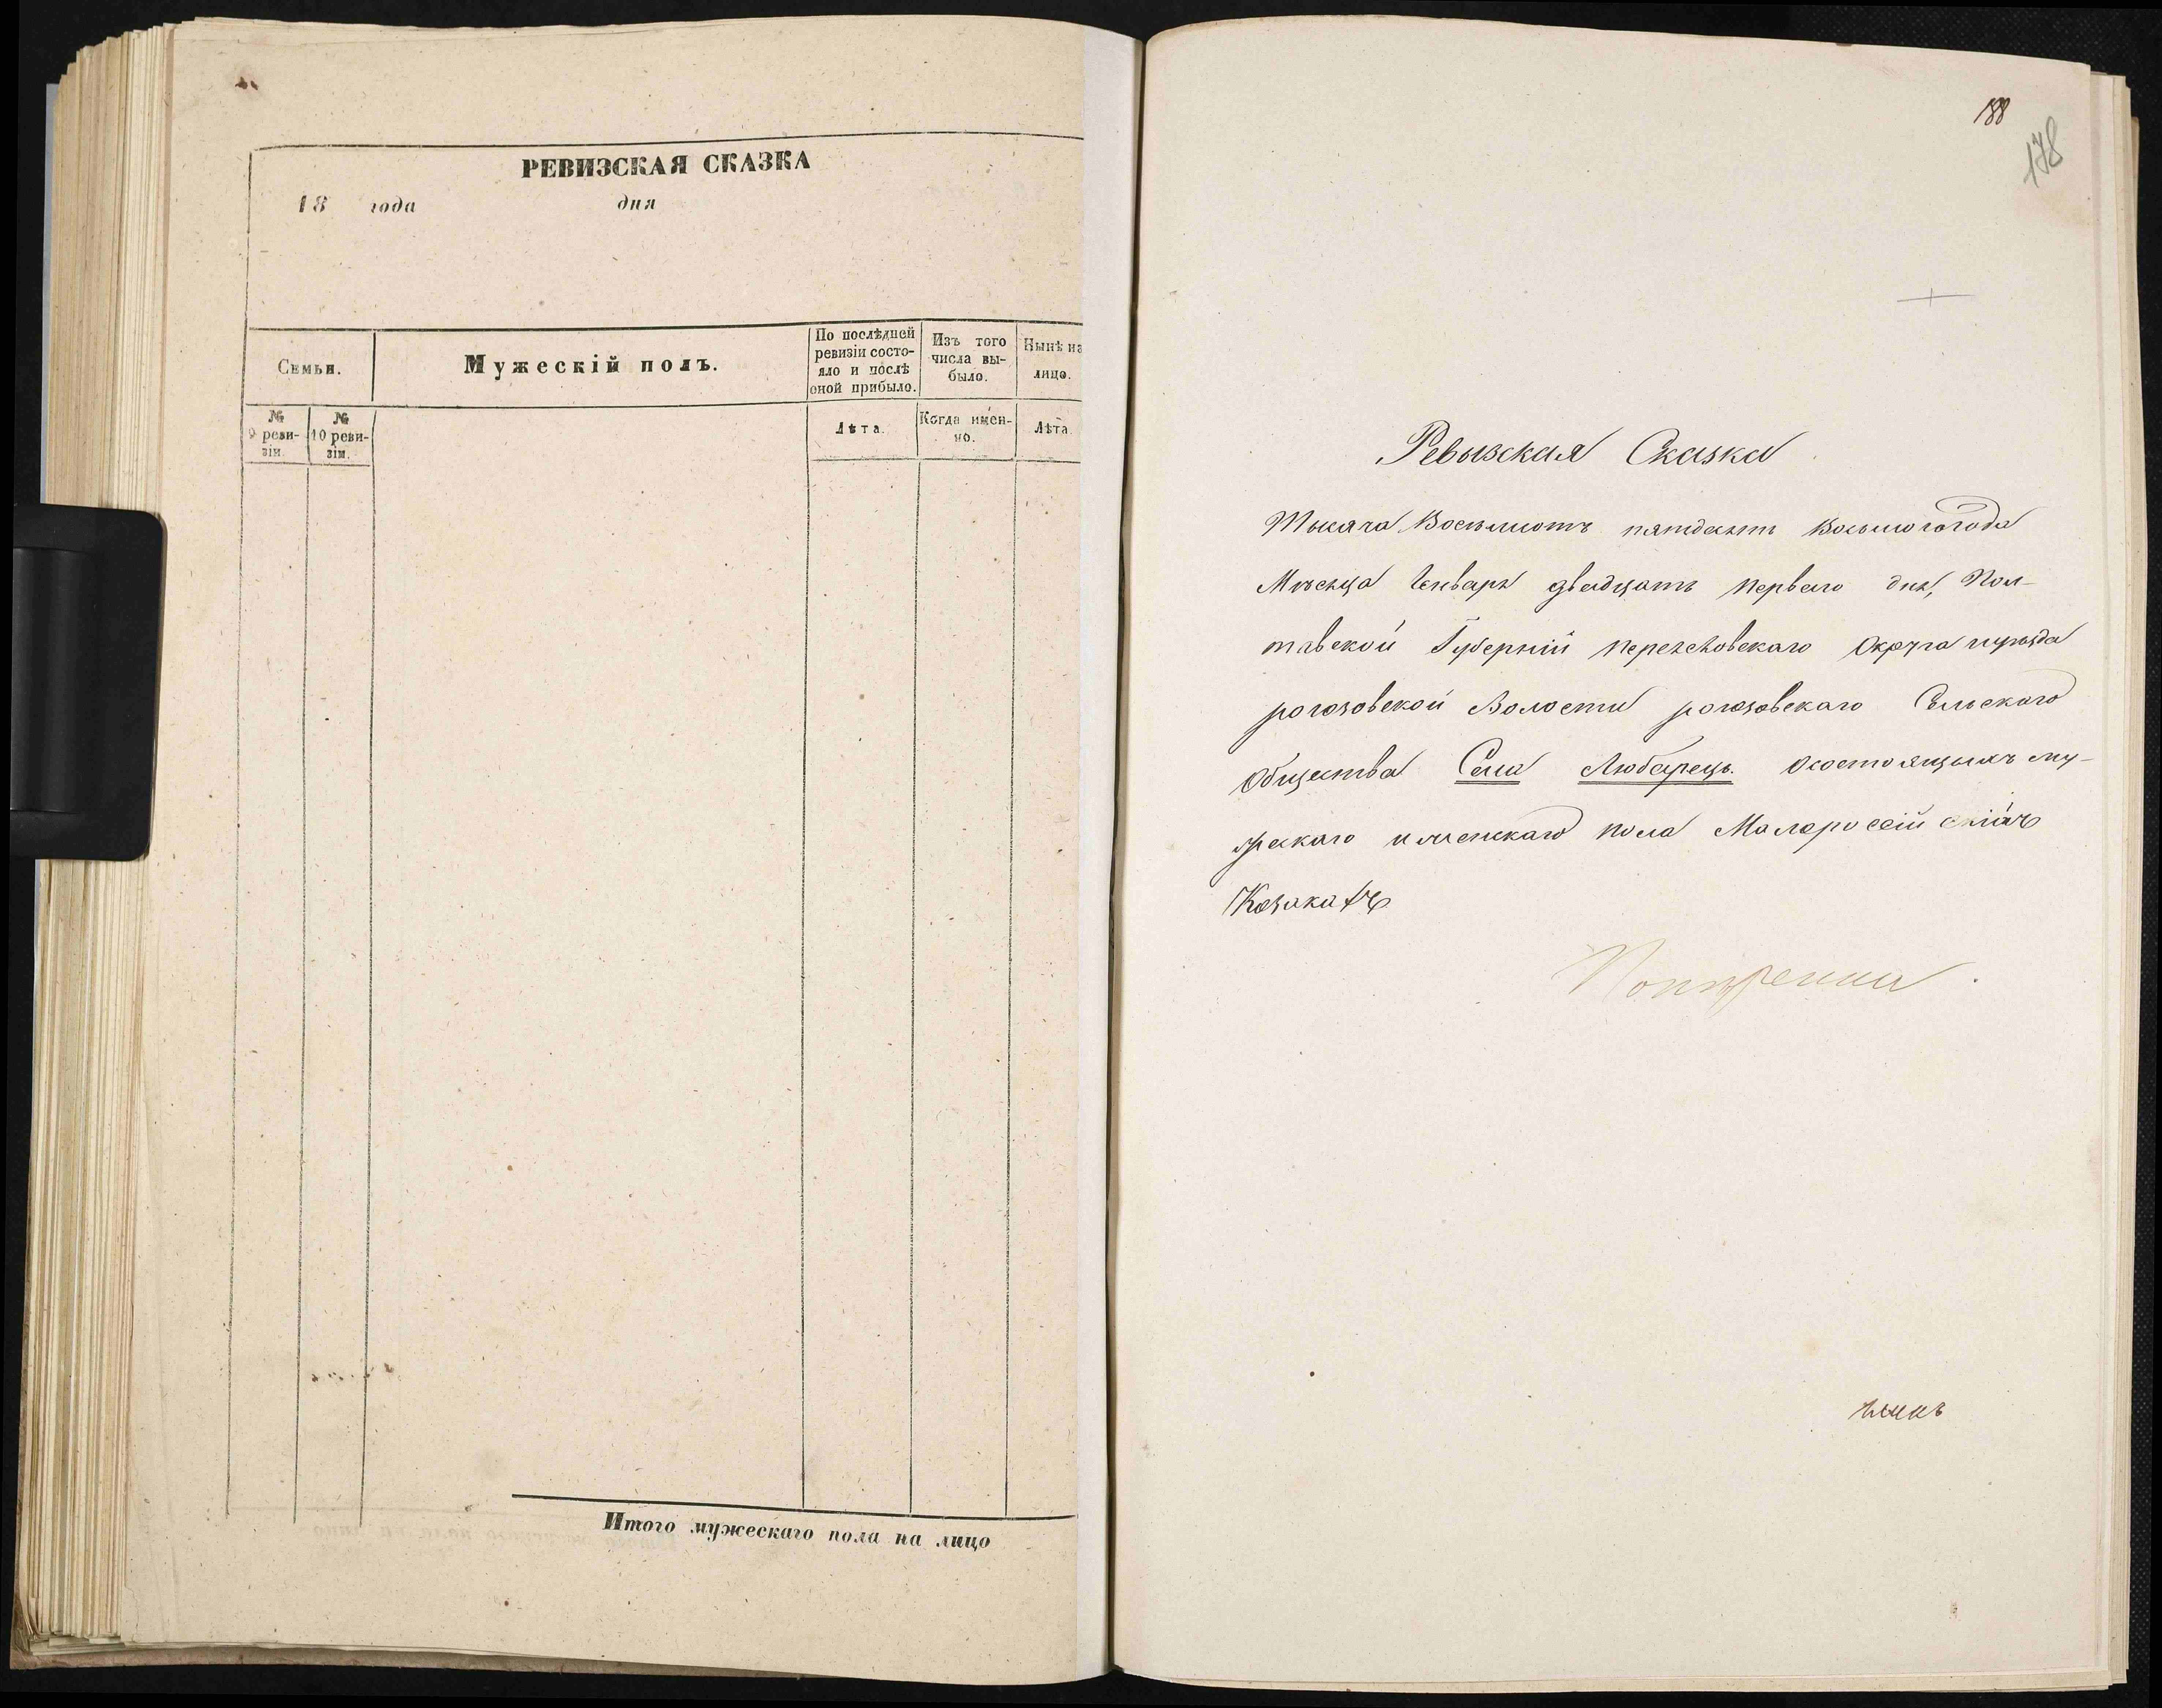 РЕВИЗСКАЯ СКАЗКА
18 года дня
Семьи.
Мужескій полъ.
По послѣдней ревизіи состояло и послѣ оной прибыло.
Изъ того числа выбыло.
Нынѣ на лицо.
№ 9 ревизіи.
№ 10 ревизіи.
Лѣта.
Когда именно.
Лѣта.
Итого мужескаго пола на лицо
188
178
Ревызская Сказка
Тысяча Восемъсотъ пятдесятъ Восьмого года
Мѣсяца Генваря двадцать первого дня, Пол-
тавской Губерніи переяславскаго Округа
рогозовской Волости рогозовскаго Сельского
Общества Села Любарець. Осостоящыхъ му-
жескаго и женскаго пола Малоросейскіхъ
Козакахъ